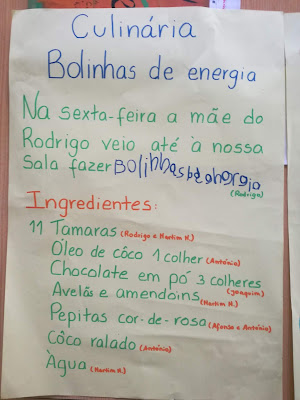 Culinária
Bolinhas de energia
Na sexta-feira a mãe do
Rodrigo veio até à nossa
Sala fazer Bolinhas de energia
(Rodrigo)
Ingredientes:
11 Tâmaras (Rodrigo e Martim N.)
Óleo de côco 1 colher (António)
Chocolate em pó 3 colheres
(Joaquim)
Avelãs e amendoins (Martim N.)
Pepitas cor-de-rosa (Afonso e António)
Côco ralado (António)
Àgua (Martim N.)